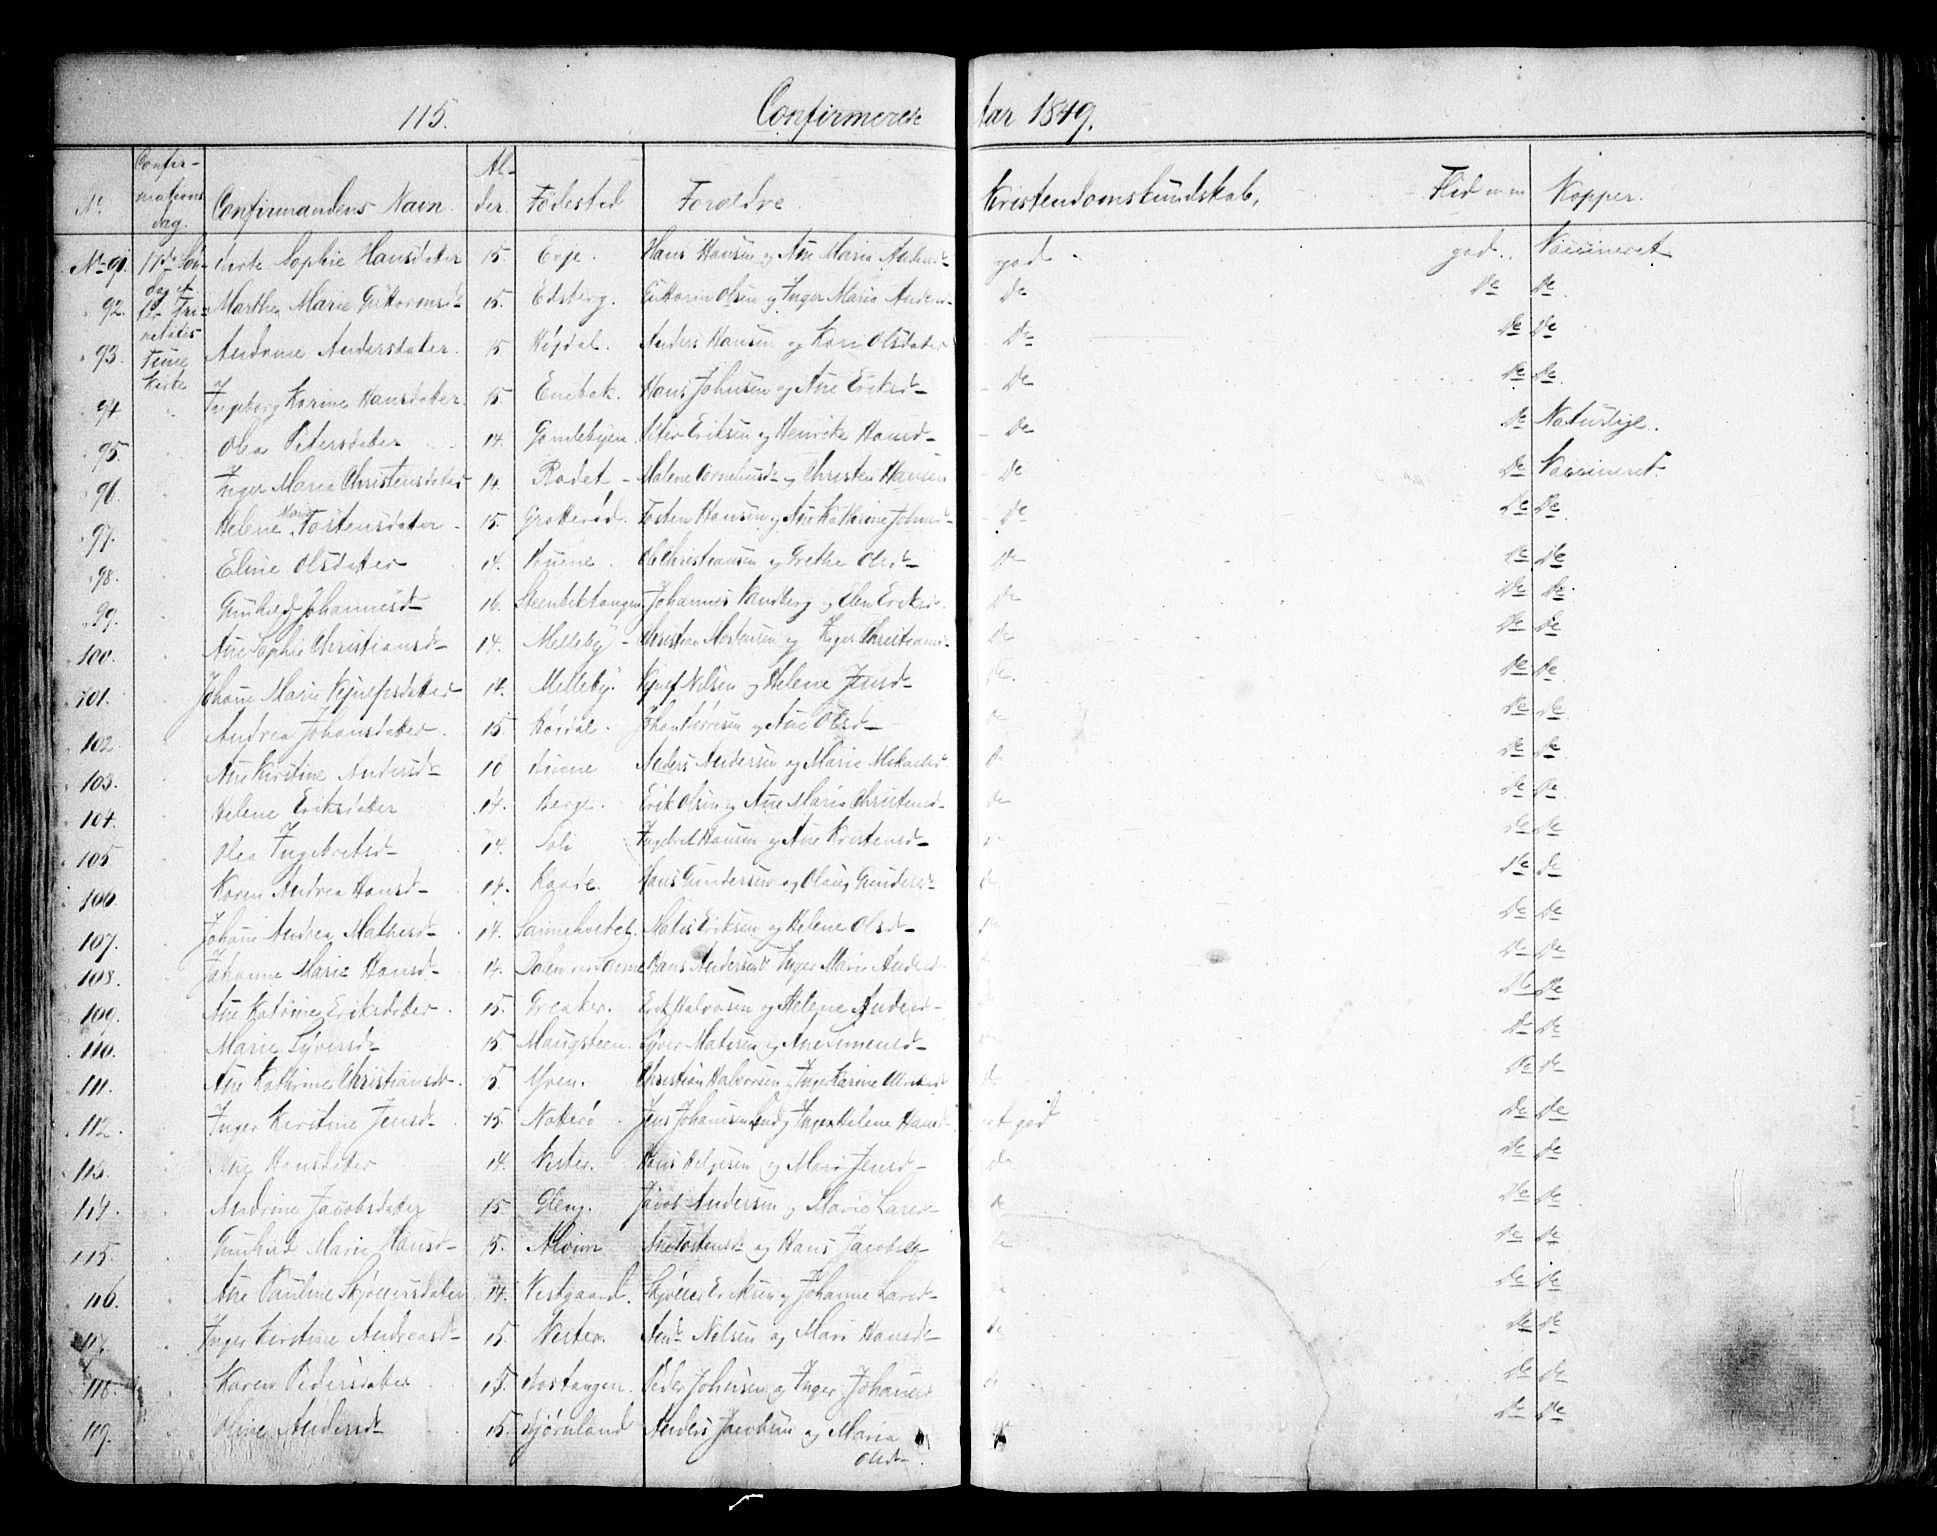 115. Confirmerede Aar 1849.
No. Confirmations dag. Confirmandens Navn. Alder. Fødested Foreldre. Kristendomskundskab. Flid Kopper.
No 91. 17de Søn- Sophie Hansdater 15. Evje. Hans Hansen og Ane Maria Andersd god god. Vaccineret
dag ef.
92. Marthe Marie Guttormsd 15. Edsberg. Guttorm Olsen og Inger Maria Andersd De De De
Tri-
nitatis
93. Tune Andrine Andersdater. 15 Høydal. Anders Hansen og Kari Olsdater De De De
Kirke
94 " Ingeborg Korine Hansdater. 15. Enebak. Hans Johnsen og Ane Eriksd De De De.
95. " Olea Petersdater 14. Gomlebyen Peter Eriksen og Henrike Hansd De De Naturlige.
96. " Inger Maria Christensdater 14. Rodet Malene Corneliusd og Christen Hansen De De Vaccineret.
97. " Helene Marie Tostensdater 15. Grotterød. Tosten Hansen og Ane Kathrine Johnsd De De De
98. " Eline Olsdater 14. Ole Christiansen og Grethe Olsd De De De
99. " Gunhild Johannesd 16. Steenbektangen Johannes Sandberg og Elen Eriksd. De De De.
100. " Ane Sophie Christiansd 14. Melleby Christian Mortensen og Inger Christiansd De De De
101. Johane Marie 14. Melleby. Nilsen og Helene Jensd De. De De.
102. Andrea Johansdater. 15. Johan og Ane Olsd De De De
103. Ane Kirstine Andersd Anders Andersen og Maria Mikaelsd D De De
104. Helene Eriksdater 14. Berge. Erik Olsen og Ane Maria Christensd De De De.
105 Olea Ingebretsd 14. Soli Ingebret Hansen og Ane Kristensd De De
106 Karen Andrea Hansd 14. Raade. Hans Gundersen og Olaug Gundersd De De De
107. Johane Andrea Mathisd 14. Sannehvedet. Matis Eriksen og Helene Olsd De De De
108. Johanne Marie Hansd 14. Hans Andersen og Inger Marie Andersd De De
109. Ane Katrine Eriksdater. 15. Greaker. Erik Halvorsen og Helene Andersd De De De
110. Marie Syversd 15. Haugsteen. Syver Matisen og Ane Simensd De De
111. Ane Kathrine Christiansd. 15. Yven. Christian Halvorsen og Inger Karine Ulriksd De De De
112. Inger Kirstine Jensd 15. Naterø Jens Johansen Lund og Inger Helene Hansd god De De
113. Ane Hansdater 14. Vister. Hans Helgesen og Mari Jensd De De De
114. Andrine Jacobsdater 15. Gleng. Jacob Andersen og Marie Larsd De De De
115. Gunhild Marie Hansd 15. Alvim Ane Tostensd og Hans Jacobsen De De De
116. Ane Pauline 14. Vestgaard. Eriksen og Johanne Larsd De De De
117. Inger Kirstine Andreasd 15. Vister. Nilsen og Mari Hansd De De De
118. Karen Pedersdater 15 Peder Johnsen og Inger Johansd De De De
119. Oline Andersd 15. Bjørnland Anders Jacobsen og Maria De De
Olsd.